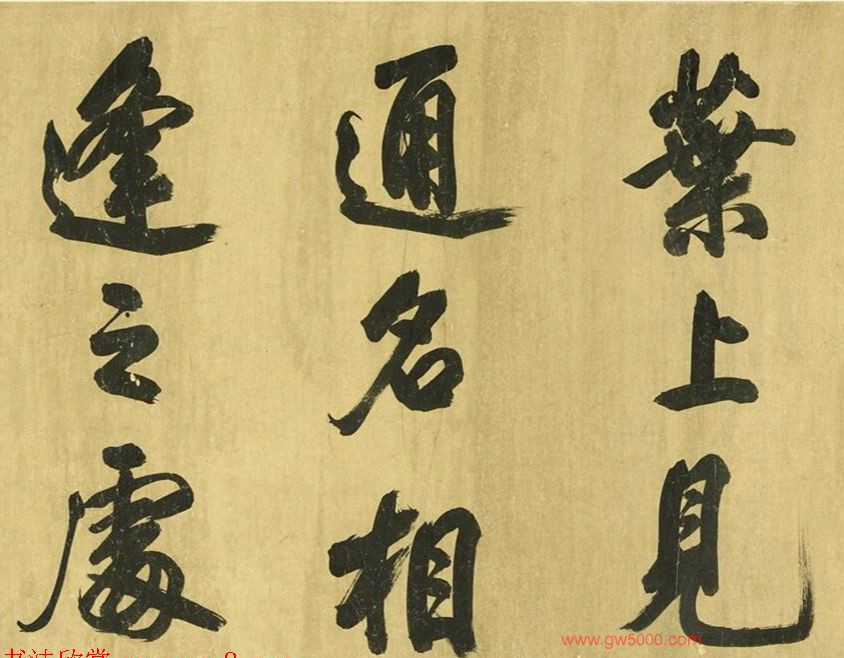 葉上見
通名相
逢之處
www.gw5000.com
书法欣赏